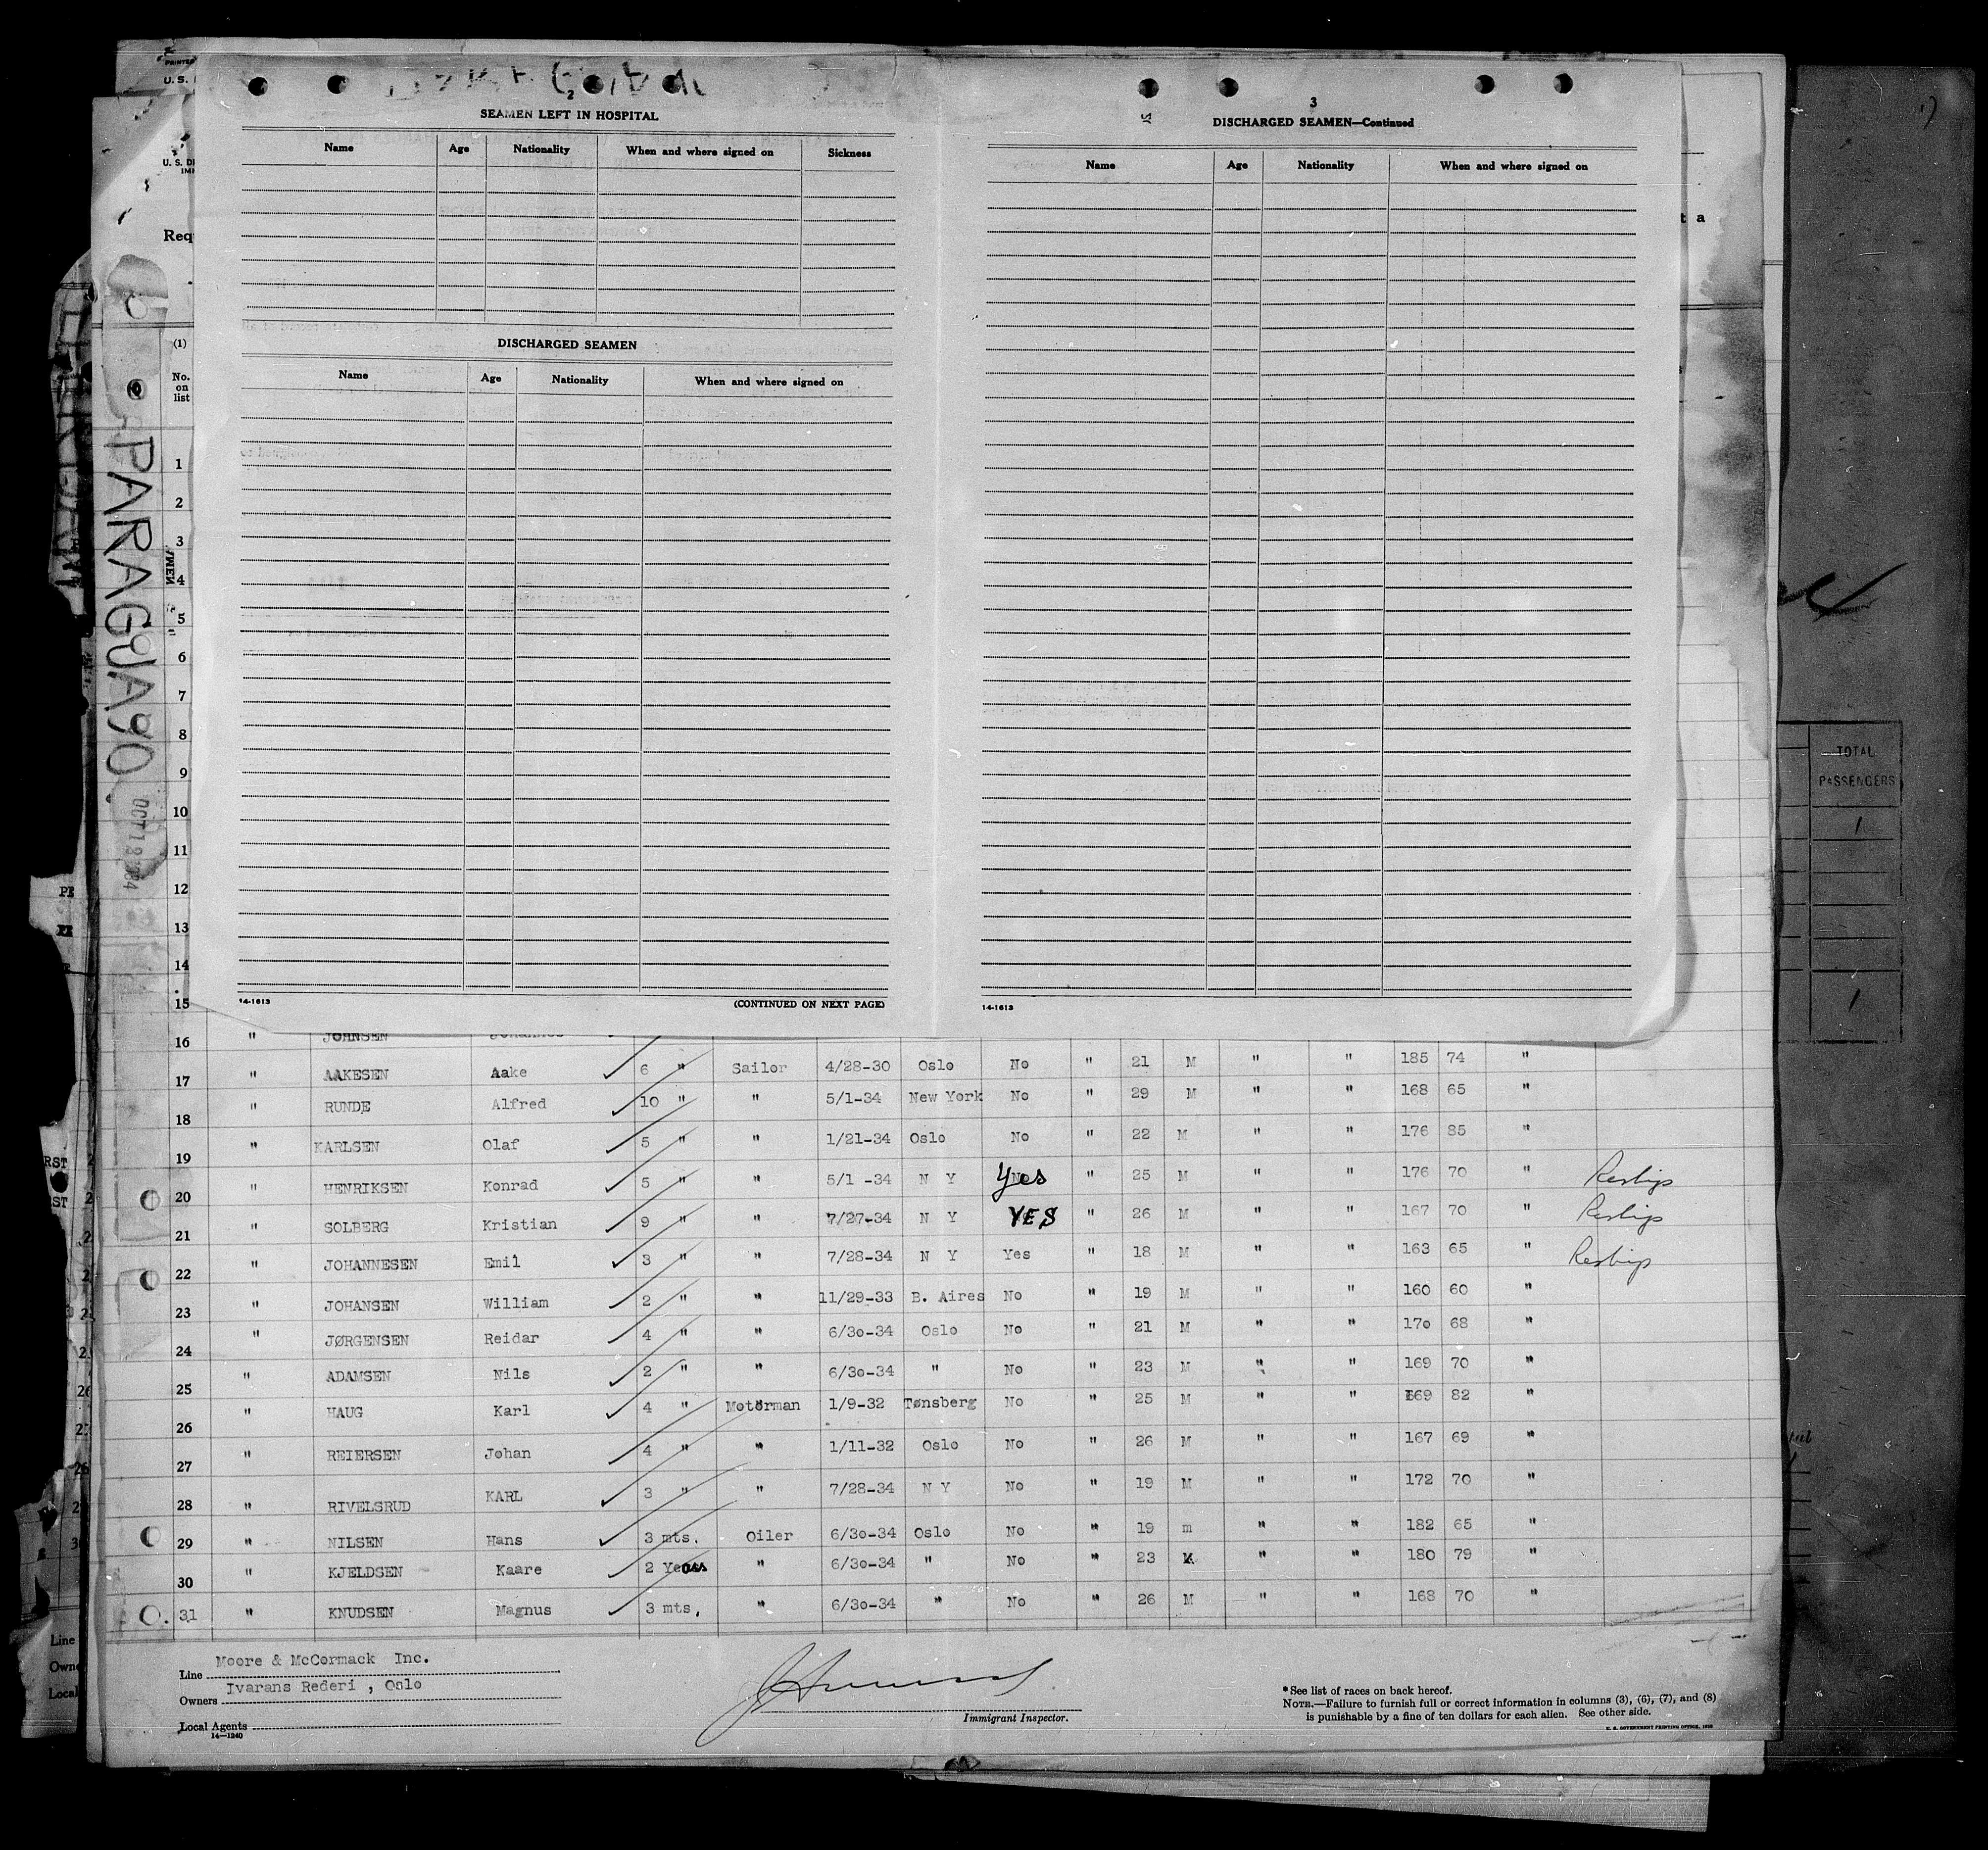 2
SEAMEN LEFT IN HOSPITAL
Name Age Nationality When and where signed on Sickness
DISCHARGED SEAMEN
Name Age Nationality When and where signed on
14-1613 (CONTINUED ON NEXT PAGE)
3
DISCHARGED SEAMEN—Continued
Name Age Nationality When and where signed on
14-1613
U. S.
Req
t a
(1)
No. on list
PARAGUAYO
OCT 12 1934
1
2
3
4
5
6
7
8
9
10
11
12
13
14
15
16 " JOHNSEN Johannes
17 " AAKESEN Aake 6 " Sailor 4/28-30 Oslo No " 21 M " " 185 74 "
18 " RUNDE Alfred 10 " " 5/1-34 New York No " 29 M " " 168 65 "
19 " KARLSEN Olaf 5 " " 1/21-34 Oslo No " 22 M " " 176 85 "
20 " HENRIKSEN Konrad 5 " " 5/1 -34 N Y Yes " 25 M " " 176 70 " Reship
21 " SOLBERG Kristian 9 " " 7/27-34 N Y YES " 26 M " " 167 70 " Reship
22 " JOHANNESEN Emil 3 " " 7/28-34 N Y Yes " 18 M " " 163 65 " Reship
23 " JOHANSEN William 2 " " 11/29-33 B. Aires No " 19 M " " 160 60 "
24 " JØRGENSEN Reidar 4 " " 6/30-34 Oslo No " 21 M " " 170 68 "
25 " ADAMSEN Nils 2 " " 6/30-34 " No " 23 M " " 169 70 "
26 " HAUG Karl 4 " Motorman 1/9-32 Tønsberg No " 25 M " " 169 82 "
27 " REIERSEN Johan 4 " " 1/11-32 Oslo No " 26 M " " 167 69 "
28 " RIVELSRUD KARL 3 " " 7/28-34 N Y No " 19 M " " 172 70 "
29 " NILSEN Hans 3 mts. Oiler 6/30-34 Oslo No " 19 m " " 182 65 "
30 " KJELDSEN Kaare 2 Years " 6/30-34 " No " 23 M " " 180 79 "
31 " KNUDSEN Magnus 3 mts, " 6/30-34 " No " 26 M " " 168 70 "
Line Moore & McCormack Inc.
Owners Ivarans Rederi , Oslo
Local Agents
14—1240
Immigrant Inspector.
* See list of races on back hereof.
NOTE.—Failure to furnish full or correct information in columns (3), (6), (7), and (8)
is punishable by a fine of ten dollars for each alien. See other side.
TOTAL
PASSENGERS
1
1
Line
Local